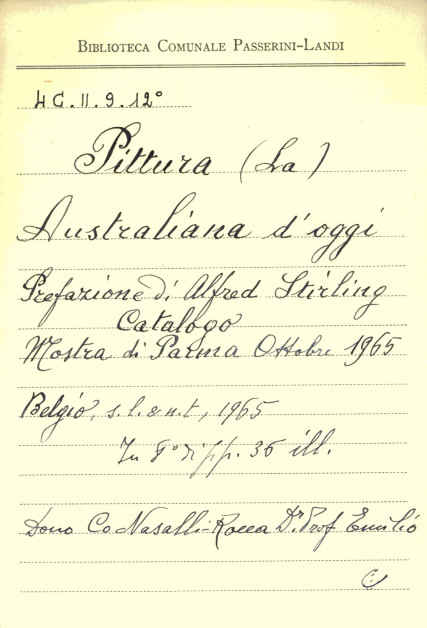 BIBLIOTECA COMUNALE PASSERINI-LANDI
4C.II.9.12°
Pittura (La)
Australiana d'oggi
Prefazione di Alfred Stirling
Catalogo
Mostra di Parma Ottobre 1965
Belgio, s.l. & n.t., 1965
In 8° di pp. 36 ill.
Dono Co Nasalli-Rocca Dr. Prof. Emilio
C